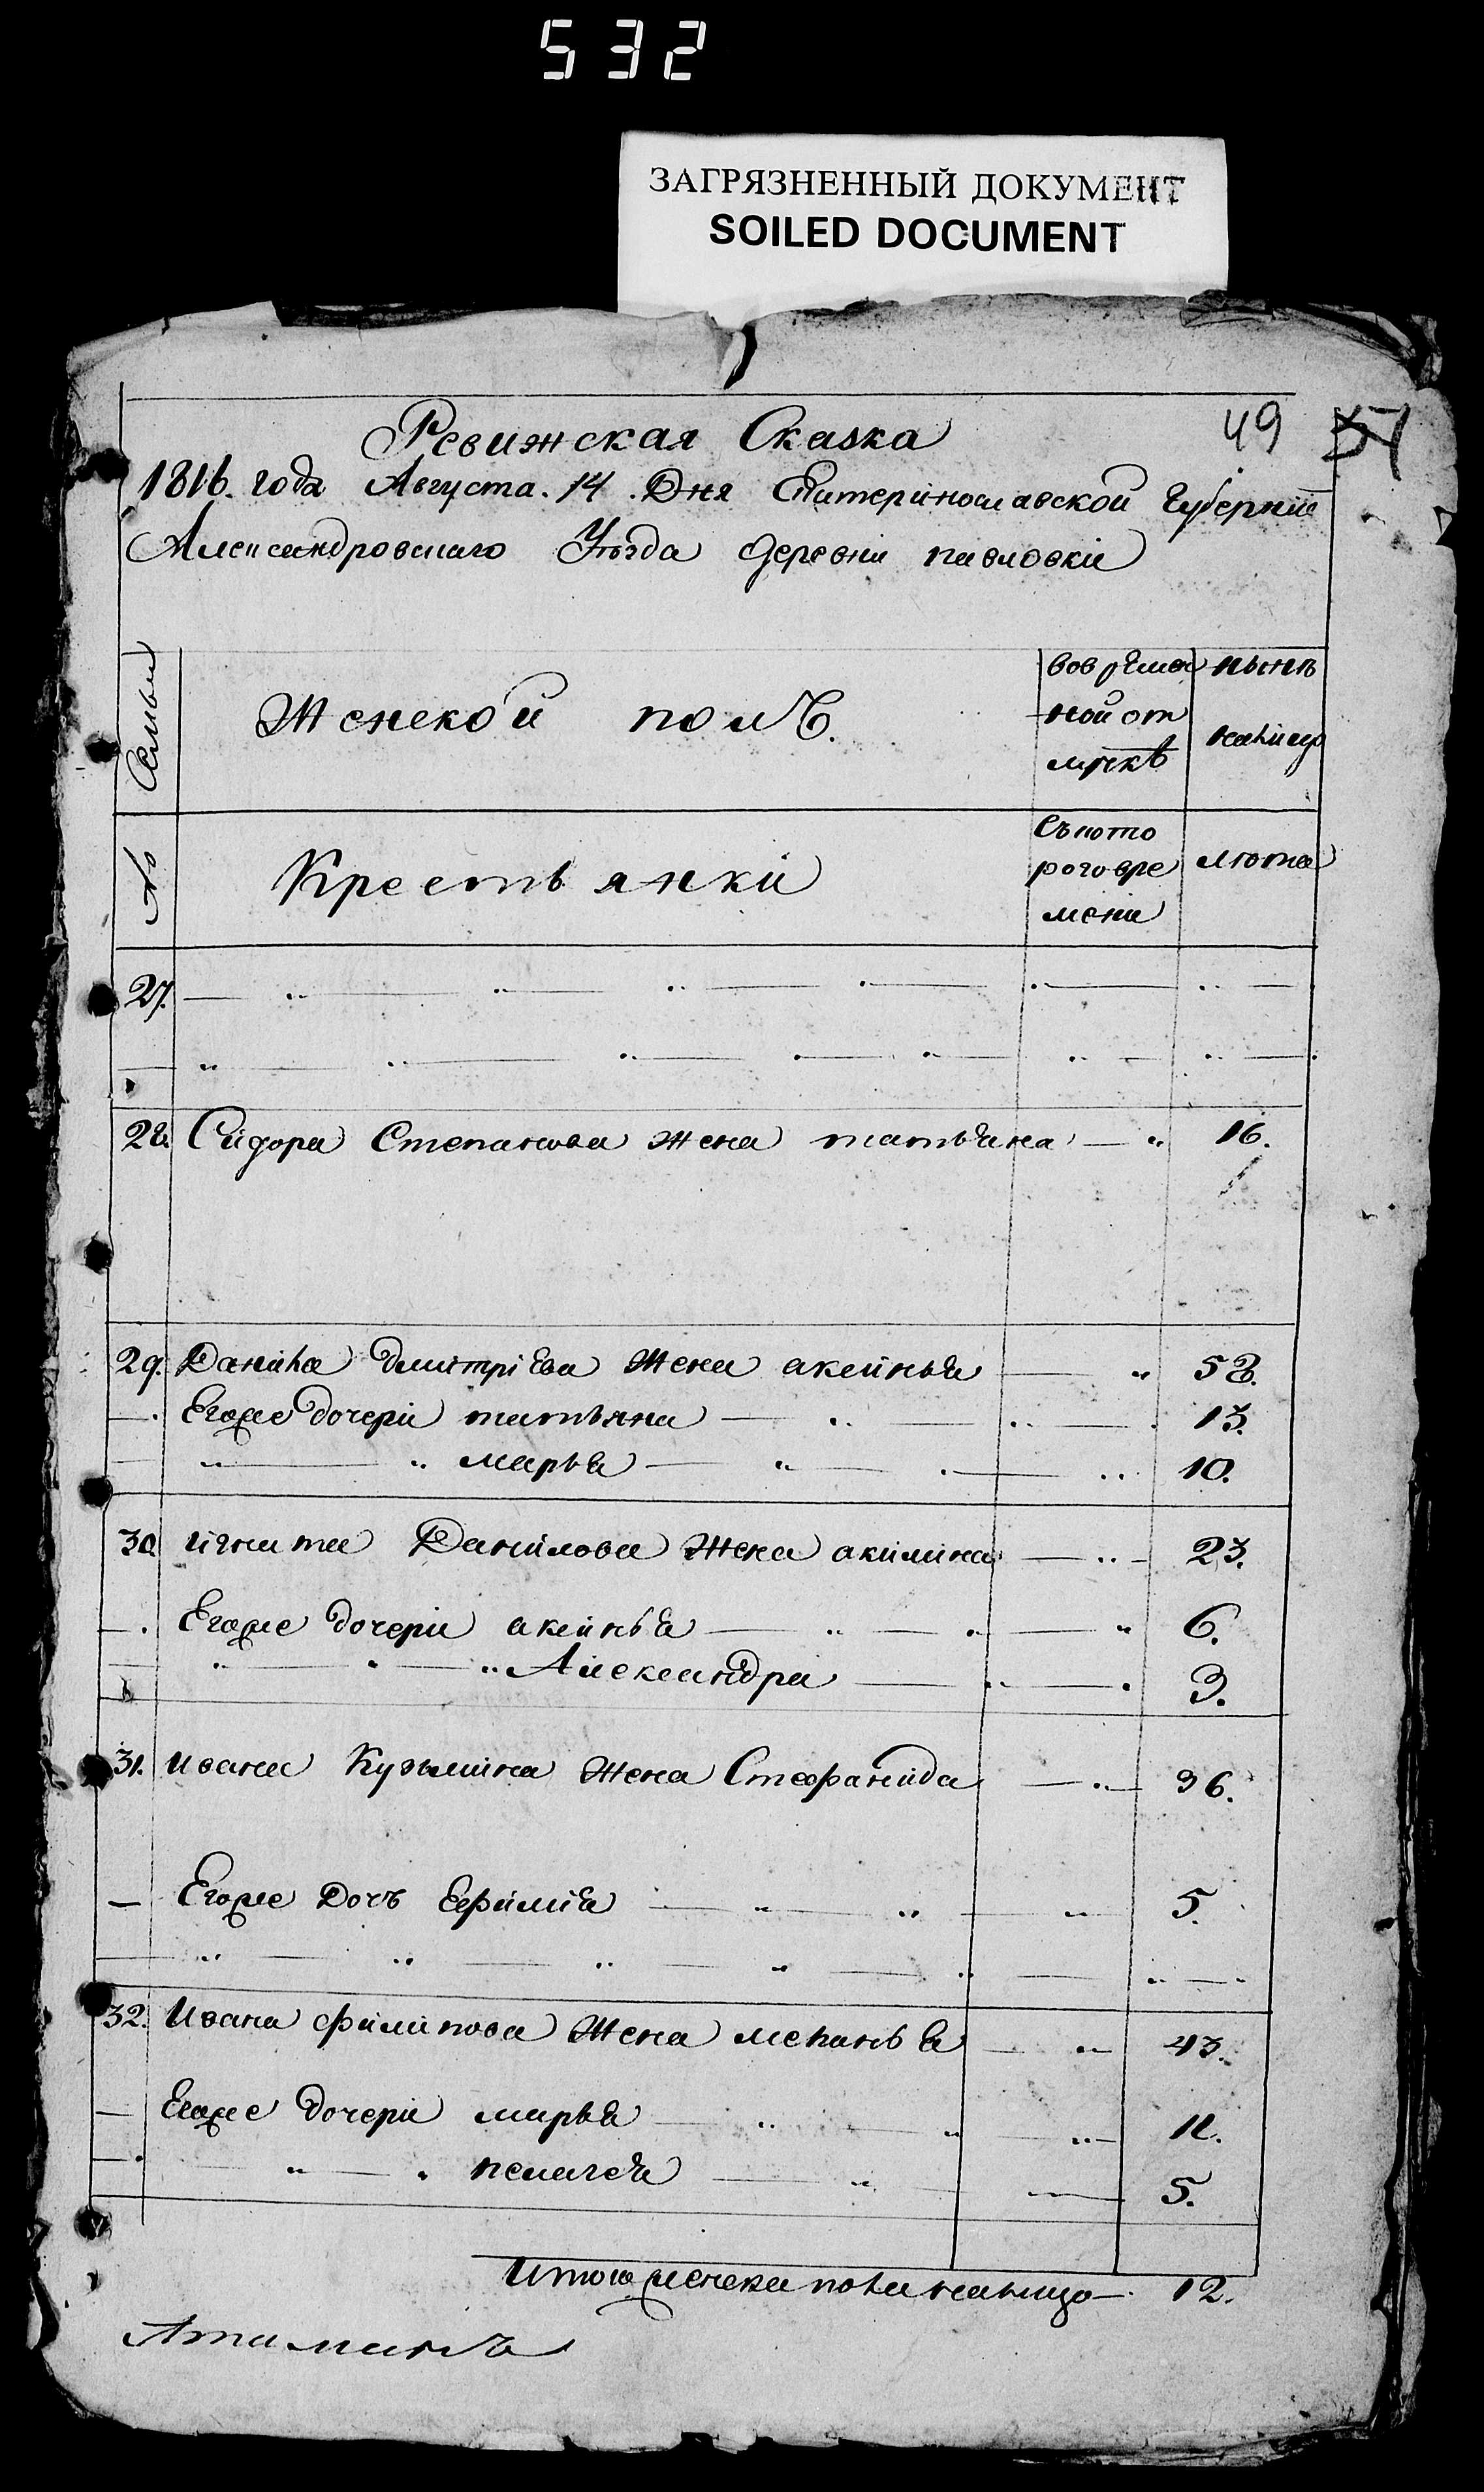 532
ЗАГРЯЗНЕННЫЙ ДОКУМЕНТ
SOILED DOCUMENT
49 51
Ревижская Сказка
1816. года Августа. 14. Дня Екатеринославской губерніи
Александровскаго Уѣзда Деревни павловки
Семьи
Женской полъ.
вовремен
ной от
лучкѣ
нынѣ
налицо
№
Крестьянки
Съкото
раговре
мени
лѣта
27.
28. Сидора Степанова жена татьяна — " 16.
29. Данила дмитріева жена аксинья — " 52.
— Егоже дочери татьяна — " — 13.
— " — " марья — " — 10.
30 игната Данилова жена акилина — " — 23.
— Егоже дочери аксинья — " — 6.
— " — " Александра — " — 3.
31. ивана Кузьмина жена Стефанида — " — 36.
— Егоже Дочь Ефимія — " — 5.
32. Ивана филипова жена меланья — " — 43.
— Егоже дочери марья — " — 11.
— " — " пелагея — " — 5.
Итого женска пола налицо — 12.
Атаманъ